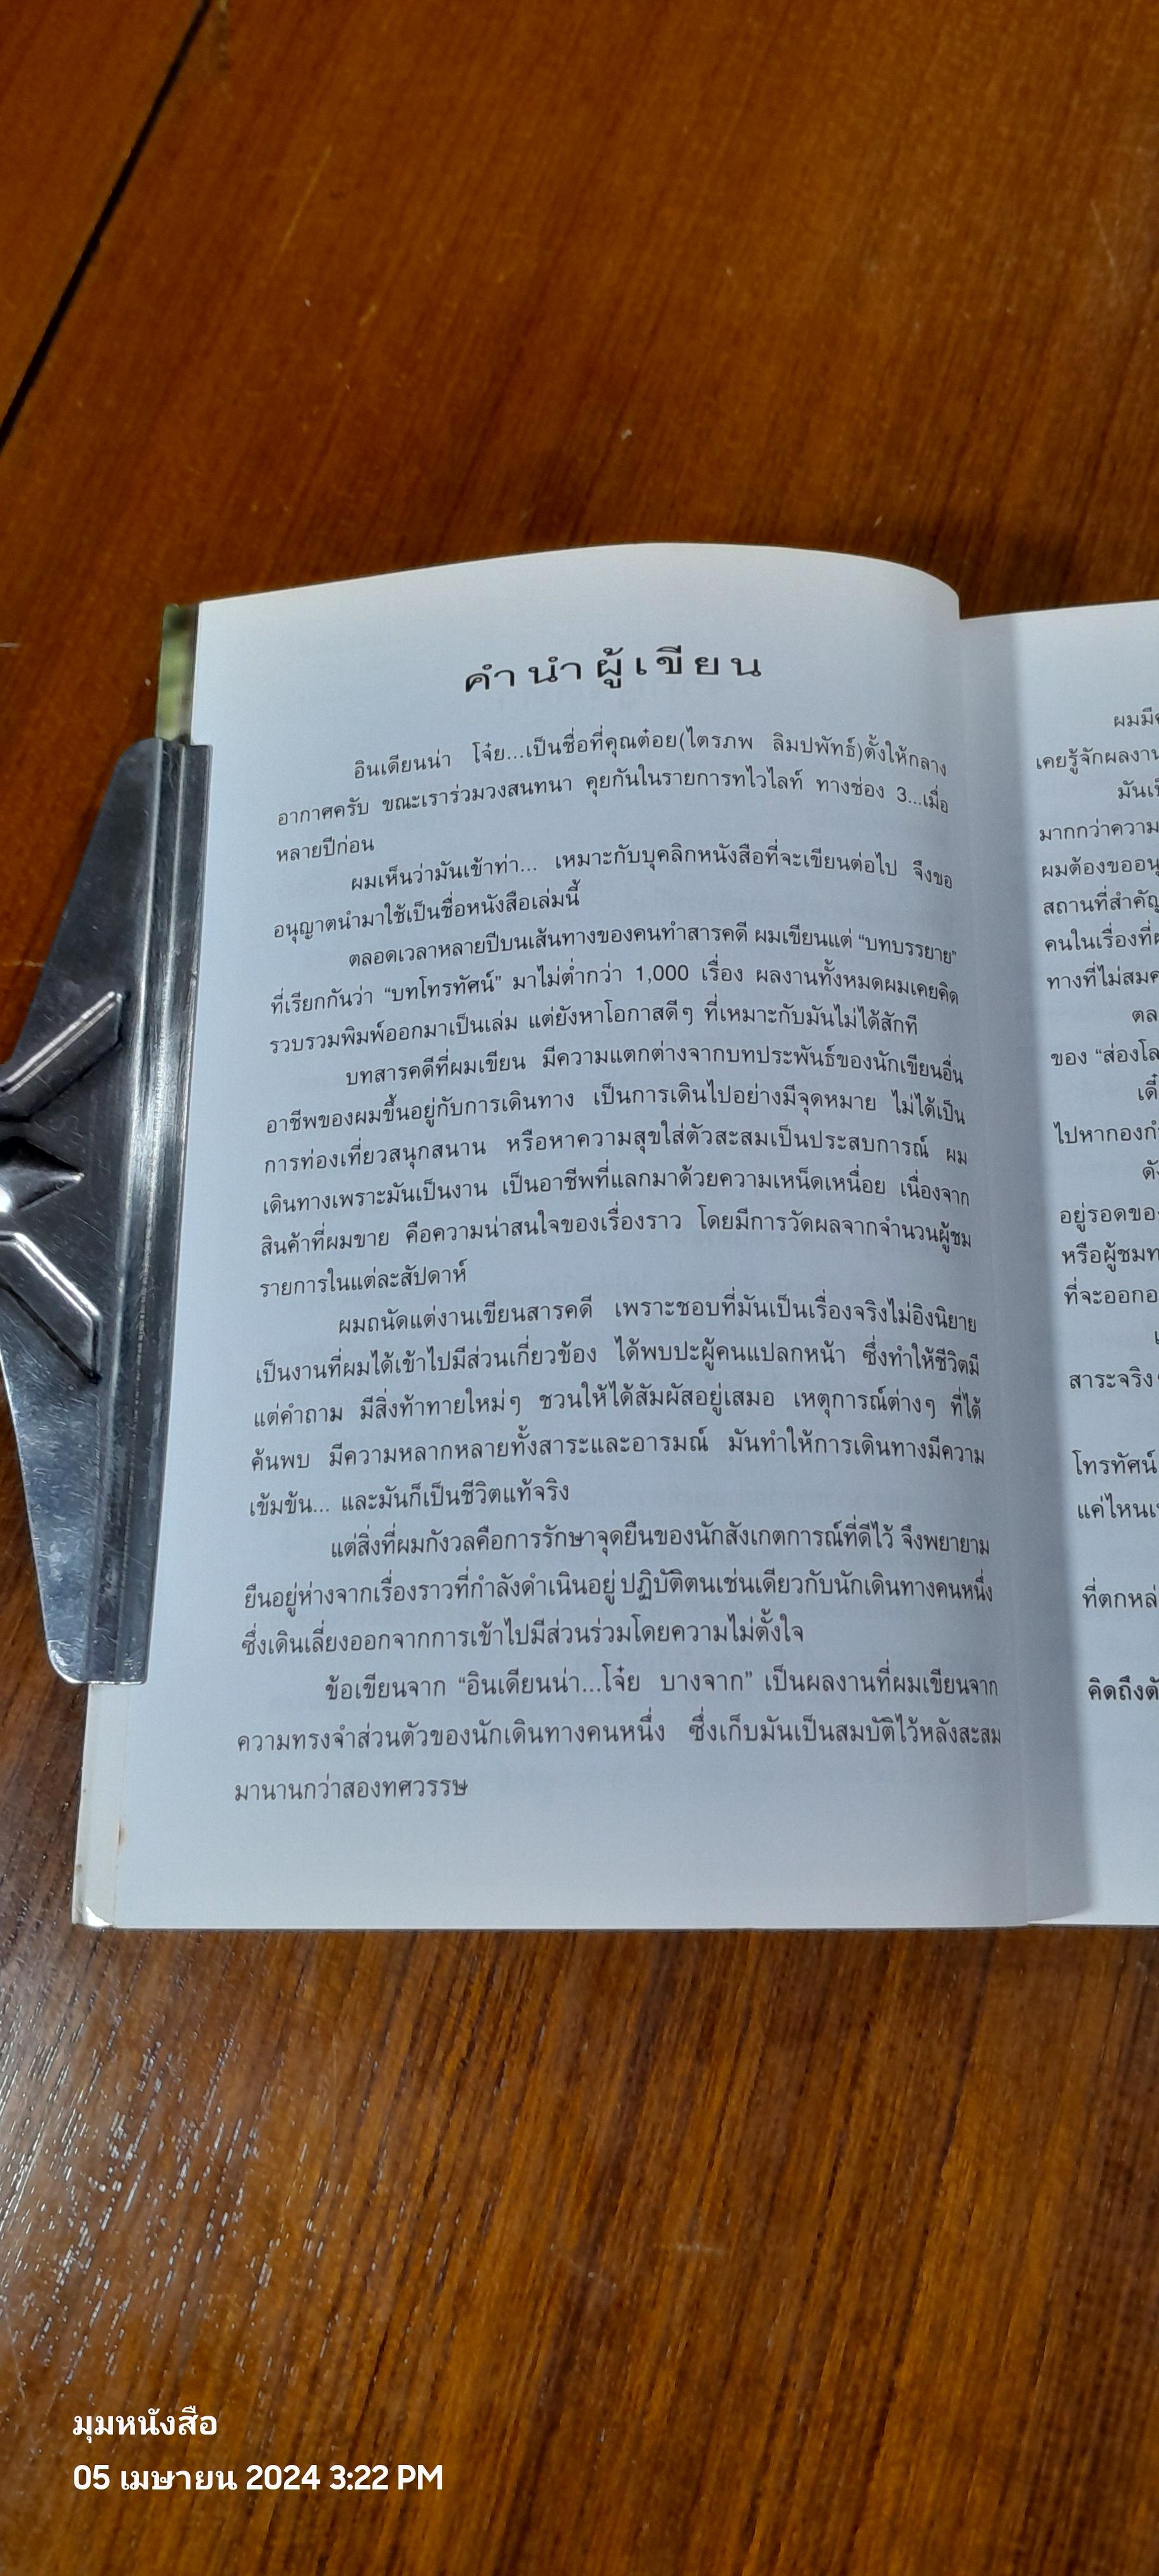 คำนำผู้เขียน
อินเดียนน่า โจ๋ย...เป็นชื่อที่คุณต๋อย(ไตรภพ ลิมปพัทธ์)ตั้งให้กลาง
อากาศครับ ขณะเราร่วมวงสนทนา คุยกันในรายการทไวไลท์ ทางช่อง 3...เมื่อ
หลายปีก่อน
ผมเห็นว่ามันเข้าท่า... เหมาะกับบุคลิกหนังสือที่จะเขียนต่อไป จึงขอ
อนุญาตนำมาใช้เป็นชื่อหนังสือเล่มนี้
ตลอดเวลาหลายปีบนเส้นทางของคนทำสารคดี ผมเขียนแต่ “บทบรรยาย”
ที่เรียกกันว่า “บทโทรทัศน์” มาไม่ต่ำกว่า 1,000 เรื่อง ผลงานทั้งหมดผมเคยคิด
รวบรวมพิมพ์ออกมาเป็นเล่ม แต่ยังหาโอกาสดีๆ ที่เหมาะกับมันไม่ได้สักที
บทสารคดีที่ผมเขียน มีความแตกต่างจากบทประพันธ์ของนักเขียนอื่น
อาชีพของผมขึ้นอยู่กับการเดินทาง เป็นการเดินไปอย่างมีจุดหมาย ไม่ได้เป็น
การท่องเที่ยวสนุกสนาน หรือหาความสุขใส่ตัวสะสมเป็นประสบการณ์ ผม
เดินทางเพราะมันเป็นงาน เป็นอาชีพที่แลกมาด้วยความเหน็ดเหนื่อย เนื่องจาก
สินค้าที่ผมขาย คือความน่าสนใจของเรื่องราว โดยมีการวัดผลจากจำนวนผู้ชม
รายการในแต่ละสัปดาห์
ผมถนัดแต่งานเขียนสารคดี เพราะชอบที่มันเป็นเรื่องจริงไม่อิงนิยาย
เป็นงานที่ผมได้เข้าไปมีส่วนเกี่ยวข้อง ได้พบปะผู้คนแปลกหน้า ซึ่งทำให้ชีวิตมี
แต่คำถาม มีสิ่งท้าทายใหม่ๆ ชวนให้ได้สัมผัสอยู่เสมอ เหตุการณ์ต่างๆ ที่ได้
ค้นพบ มีความหลากหลายทั้งสาระและอารมณ์ มันทำให้การเดินทางมีความ
เข้มข้น... และมันก็เป็นชีวิตแท้จริง
แต่สิ่งที่ผมกังวลคือการรักษาจุดยืนของนักสังเกตการณ์ที่ดีไว้ จึงพยายาม
ยืนอยู่ห่างจากเรื่องราวที่กำลังดำเนินอยู่ ปฏิบัติตนเช่นเดียวกับนักเดินทางคนหนึ่ง
ซึ่งเดินเลี่ยงออกจากการเข้าไปมีส่วนร่วมโดยความไม่ตั้งใจ
ข้อเขียนจาก “อินเดียนน่า...โจ๋ย บางจาก” เป็นผลงานที่ผมเขียนจาก
ความทรงจำส่วนตัวของนักเดินทางคนหนึ่ง ซึ่งเก็บมันเป็นสมบัติไว้หลังสะสม
มานานกว่าสองทศวรรษ
ผมมี
เคยรู้จักผลงาน
มันเป็
มากกว่าความ
ผมต้องขออนุ
สถานที่สำคัญ
คนในเรื่องที่
ทางที่ไม่สม
ตล
ของ “ส่องโล
เดี๋
ไปหากองก
ดั
อยู่รอดของ
หรือผู้ชม
ที่จะออกอ
สาระจริง
โทรทัศน์
แค่ไหน
ที่ตกหล่
คิดถึงตั
มุมหนังสือ
05 เมษายน 2024 3:22 PM